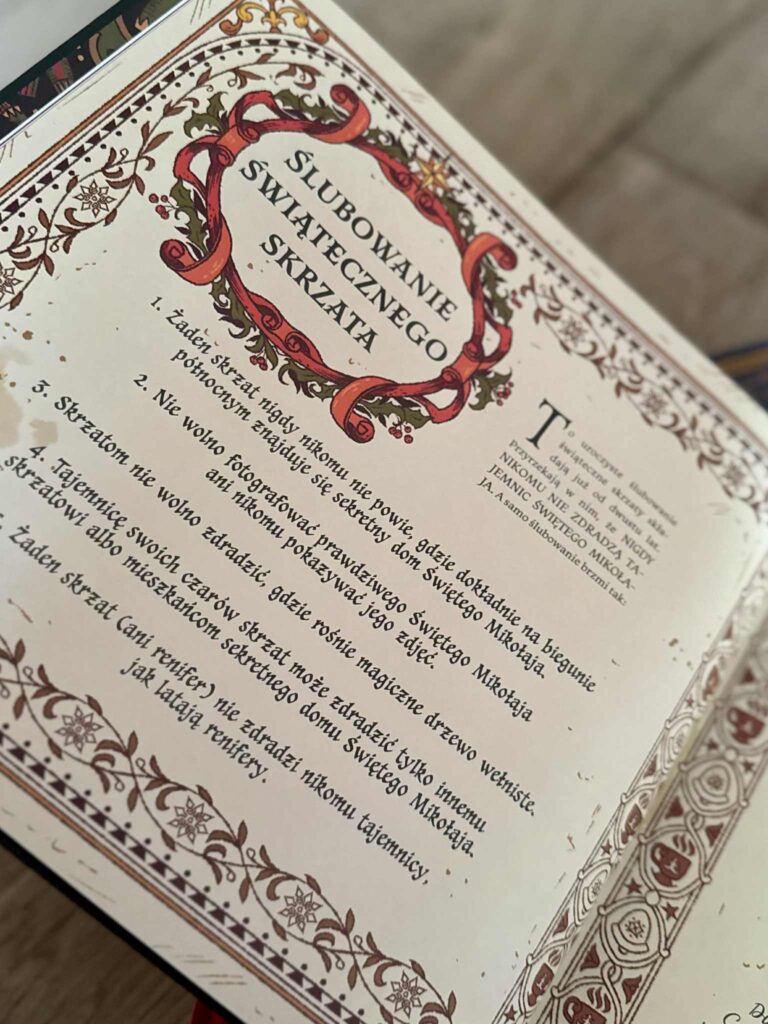 ŚLUBOWANIE
ŚWIĄTECZNEGO
SKRZATA
To uroczyste ślubowanie
świąteczne skrzaty skła-
dają już od dwustu lat.
Przyrzekają w nim, że NIGDY
NIKOMU NIE ZDRADZĄ TA-
JEMNIC ŚWIĘTEGO MIKOŁA-
JA. A samo ślubowanie brzmi tak:
1. Żaden skrzat nigdy nikomu nie powie, gdzie dokładnie na biegunie
północnym znajduje się sekretny dom Świętego Mikołaja.
2. Nie wolno fotografować prawdziwego Świętego Mikołaja
ani nikomu pokazywać jego zdjęć.
3. Skrzatom nie wolno zdradzić, gdzie rośnie magiczne drzewo wełniste.
4. Tajemnicę swoich czarów skrzat może zdradzić tylko innemu
skrzatowi albo mieszkańcom sekretnego domu Świętego Mikołaja.
Żaden skrzat (ani renifer) nie zdradzi nikomu tajemnicy,
jak latają renifery.